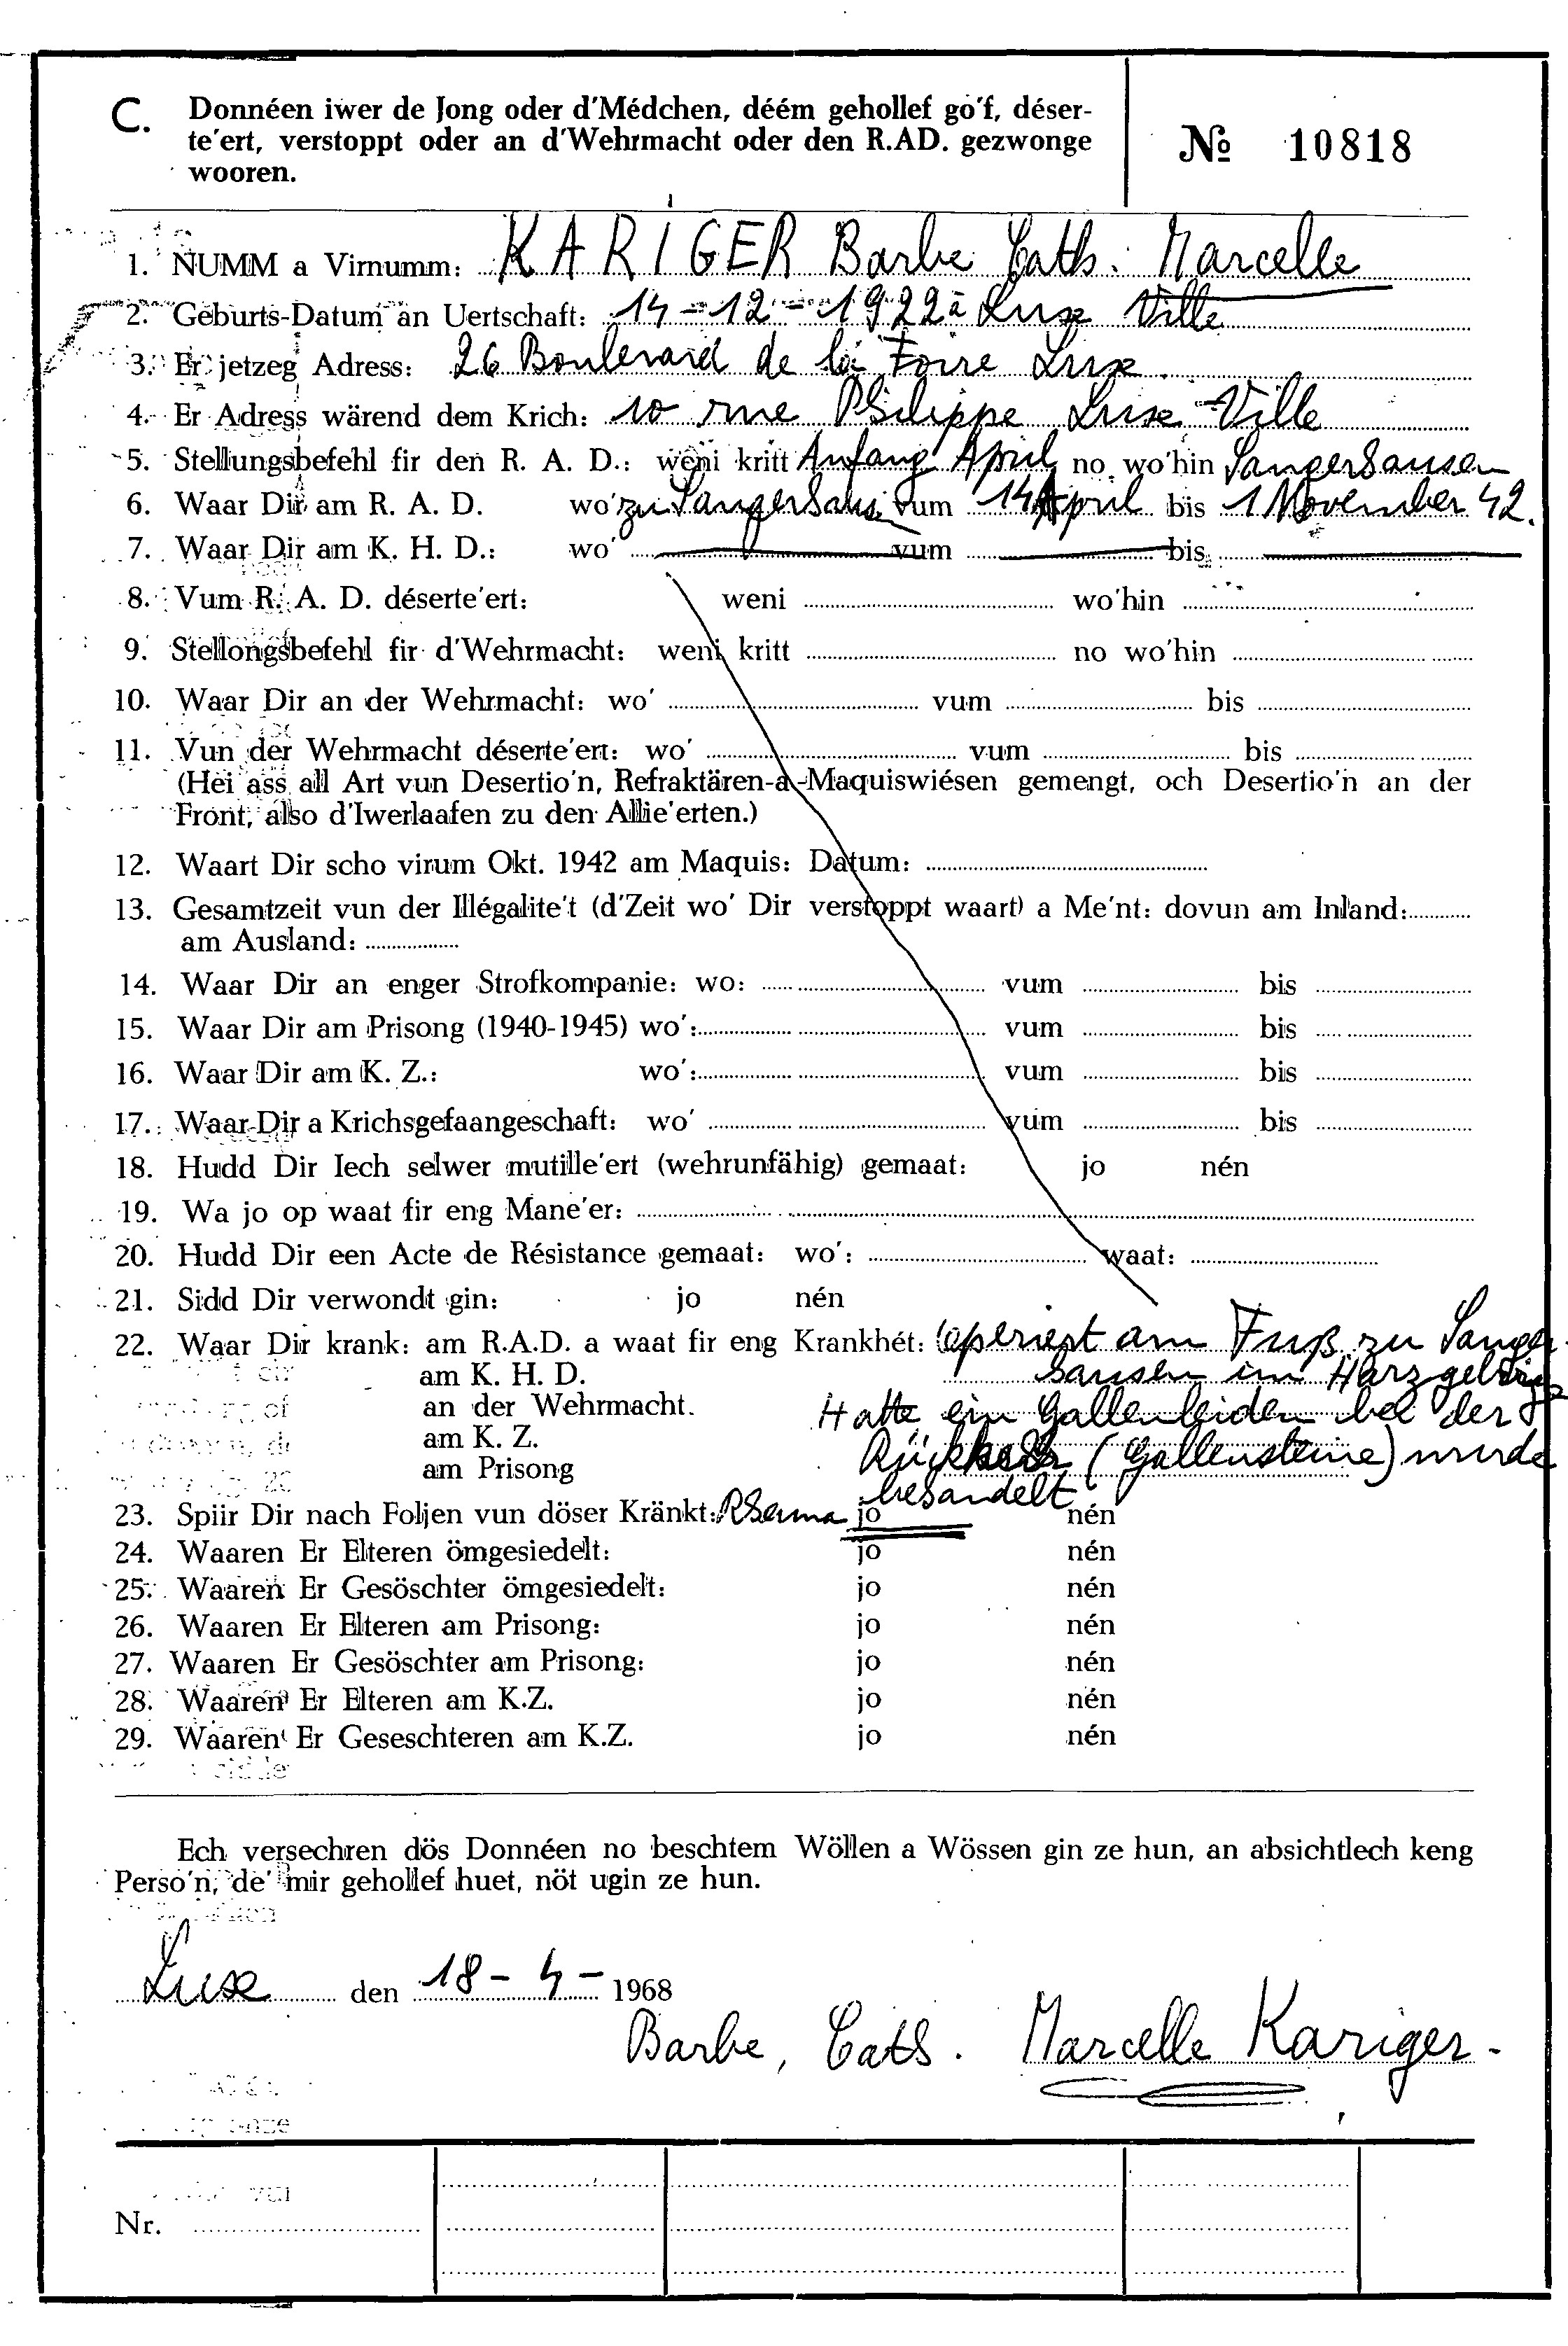 C. Donnéen iwer de Jong oder d'Médchen, déém gehollef go'f, déser-
te'ert, verstoppt oder an d'Wehrmacht oder den R.AD. gezwonge
wooren.
№ 10818
1. NUMM a Virnumm: KARIGER Barbe Cath. Marcelle
2. Geburts-Datum an Uertschaft: 14-12-1922 à Lux Ville
3. Er jetzeg Adress: 26 Boulevard de la Foire Lux.
4. Er Adress wärend dem Krich: 10 rue Philippe Lux-Ville
5. Stellungsbefehl fir den R. A. D.: weni kritt Anfang April no wo'hin Sangerhausen
6. Waar Dir am R. A. D. wo' zu Sangerhausen vum 14 April bis 1 November 42.
7. Waar Dir am K. H. D.: wo' vum bis
8. Vum R. A. D. déserte'ert: weni wo'hin
9. Stellongsbefehl fir d'Wehrmacht: weni kritt no wo'hin
10. Waar Dir an der Wehrmacht: wo' vum bis
11. Vun der Wehrmacht déserte'ert: wo' vum bis
(Hei ass all Art vun Desertio'n, Refraktären-a-Maquiswiésen gemengt, och Desertio'n an der
Front, also d'Iwerlaafen zu den Allie'erten.)
12. Waart Dir scho virum Okt. 1942 am Maquis: Datum:
13. Gesamtzeit vun der Illégalite't (d'Zeit wo' Dir verstoppt waart) a Me'nt: dovun am Inland:
am Ausland:
14. Waar Dir an enger Strofkompanie: wo: vum bis
15. Waar Dir am Prisong (1940-1945) wo': vum bis
16. Waar Dir am K. Z.: wo': vum bis
17. Waar Dir a Krichsgefaangeschaft: wo' vum bis
18. Hudd Dir Iech selwer mutille'ert (wehrunfähig) gemaat: jo nén
19. Wa jo op waat fir eng Mane'er:
20. Hudd Dir een Acte de Résistance gemaat: wo': waat:
21. Sidd Dir verwondt gin: jo nén
22. Waar Dir krank: am R.A.D. a waat fir eng Krankhét: Operiert am Fuß zu Sanger
am K. H. D. hausen im Harzgebirge
an der Wehrmacht. Hatte ein Gallenleiden bei der
am K. Z. Rückkehr (Gallensteine) wurde
am Prisong behandelt
23. Spiir Dir nach Foljen vun döser Kränkt: Rheuma jo nén
24. Waaren Er Elteren ömgesiedelt: jo nén
25. Waaren Er Gesöschter ömgesiedelt: jo nén
26. Waaren Er Elteren am Prisong: jo nén
27. Waaren Er Gesöschter am Prisong: jo nén
28. Waaren Er Elteren am K.Z. jo nén
29. Waaren Er Geseschteren am K.Z. jo nén
Ech versechren dös Donnéen no beschtem Wöllen a Wössen gin ze hun, an absichtlech keng
Perso'n, de' mir gehollef huet, nöt ugin ze hun.
Lux den 18-4- 1968
Barbe, Cath. Marcelle Kariger-
Nr.